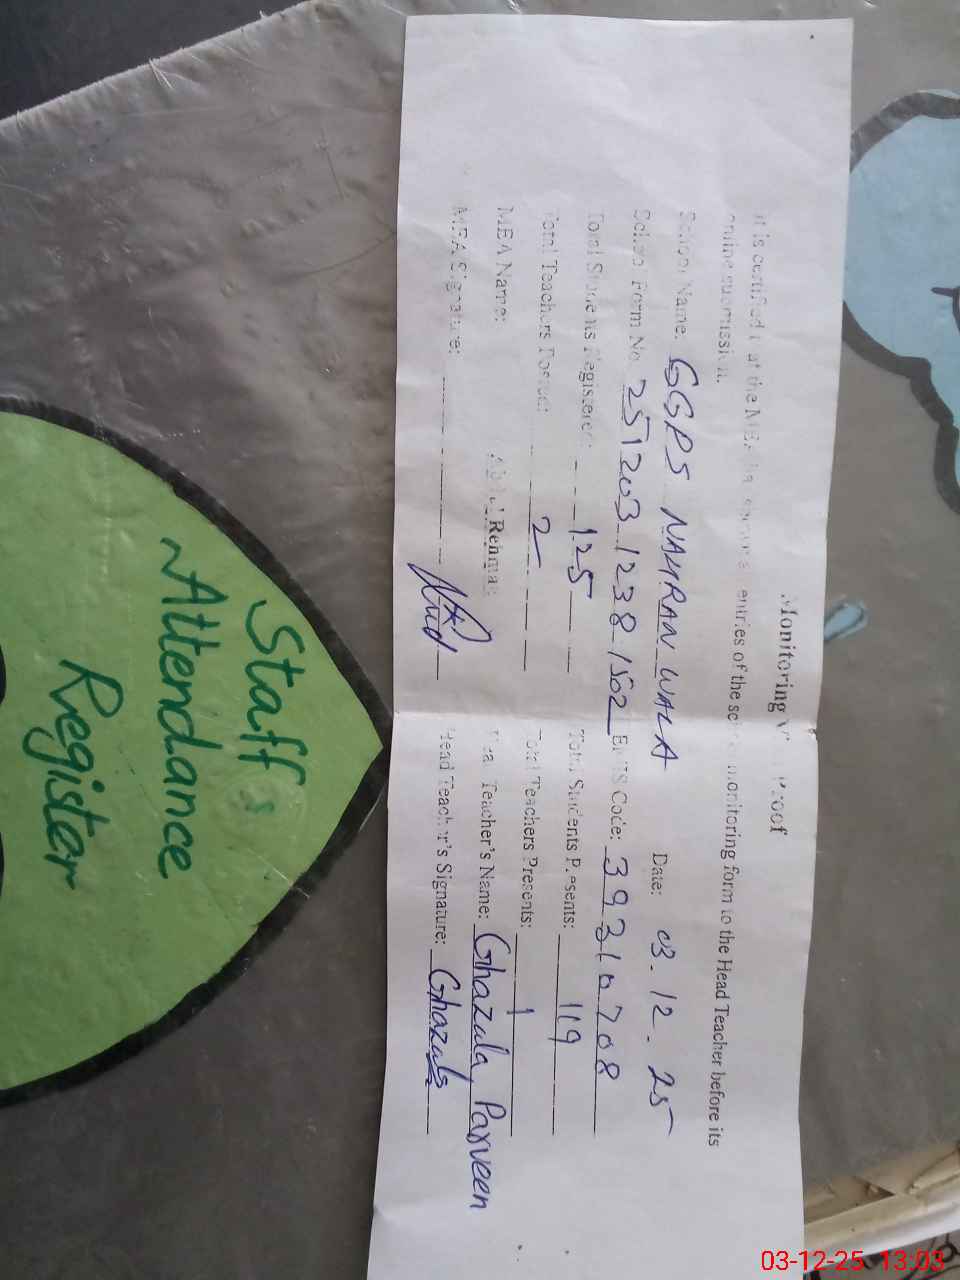 Monitoring Proof
It is certified that the MEA has shown all entries of the school monitoring form to the Head Teacher before its
online submission.
School Name: GGPS NAMRAN WALA Date: 03.12.25
School Form No 251203 1238 1502 EMIS Code: 39310708
Total Students Registered: 125 Total Students Presents: 119
Total Teachers Posted: 2 Total Teachers Presents: 1
MEA Name: Abdul Rehman Head Teacher's Name: Ghazala Parveen
MEA Signature: Head Teacher's Signature: Ghazala
Staff
Attendance
Register
03-12-25 13:03